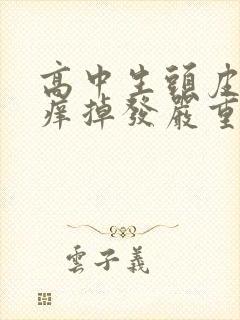 高中生頭皮
痒掉發嚴重
雲子義